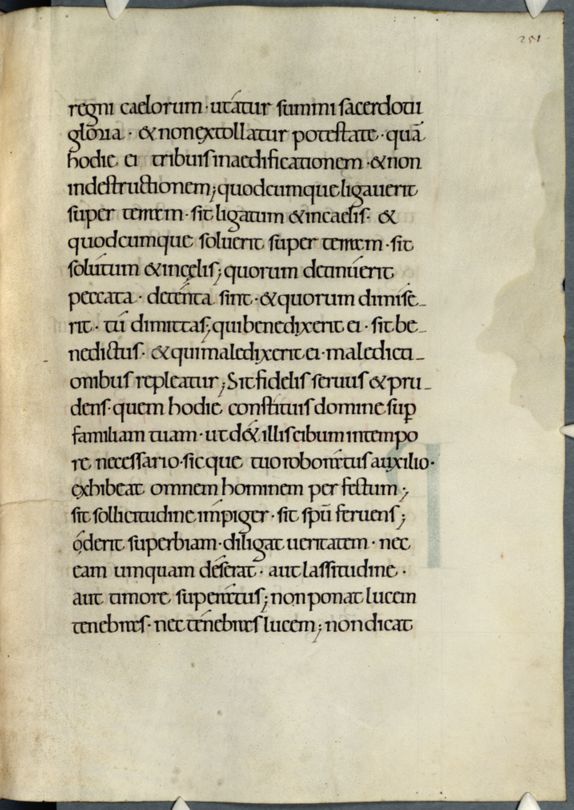 251
regni caelorum · utatur summi sacerdotii
gloria · & non extollatur potestate · quā
hodie ei tribuis inaedificationem · & non
indestructionem; quodcumque ligauerit
super terram · sit ligatum & incaelis · &
quodcumque soluerit super terram · sit
solutum & incęlis; quorum detinuerit
peccata · detenta sint · & quorum dimise-
rit · tū dimittas; qui benedixerit ei · sit be-
nedictus · & qui maledixerit ei · maledicti-
onibus repleatur; Sit fidelis seruus & pru-
dens · quem hodie constituis domine sup
familiam tuam · ut d& illis cibum intempo
re necessario · sicque tuo roboratus auxilio ·
exhibeat omnem hominem perfectum;
sit sollicitudine impiger · sit spū feruens;
oderit superbiam · diligat ueritatem · nec
eam umquam deserat · aut lassitudine ·
aut timore superatus; non ponat lucem
tenebras · nec tenebras lucem; non dicat